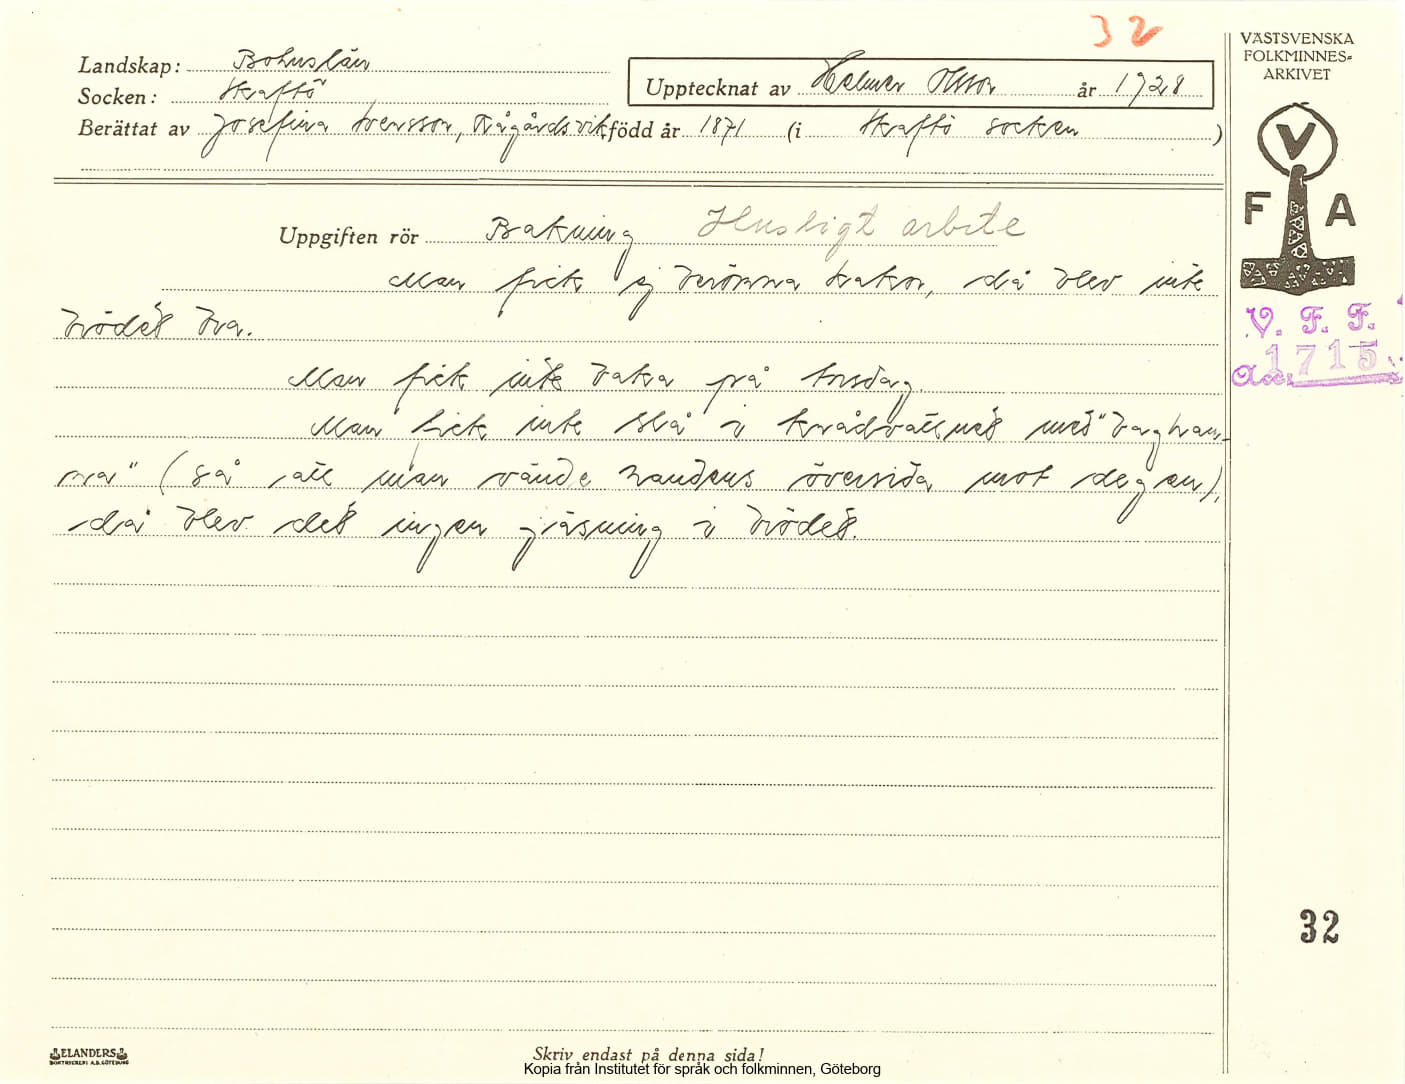 32
Landskap: Bohuslän
Socken: Skaftö
Upptecknat av Helmer Olsson år 1928
Berättat av Josefina Svensson, Rågårdsvik född år 1871 (i Skaftö socken)
VÄSTSVENSKA
FOLKMINNES-
ARKIVET
V
F A
V. F. F.
Acc. 1715
Uppgiften rör Bakning Husligt arbete
Man fick ej berömma kakor, då blev inte
brödet bra.
Man fick inte baka på torsdag
Man fick inte slå i knådvattnet med "baghan-
na" (så att man vände handens översida mot degen),
då blev det ingen jäsning i brödet.
32
ELANDERS
BOKTRYCKERI A.B. GÖTEBORG
Skriv endast på denna sida!
Kopia från Institutet för språk och folkminnen, Göteborg